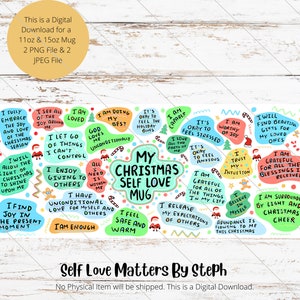 This is a Digital
Download for a
11oz & 15oz Mug
2 PNG File & 2
JPEG File
I FULLY
EMBRACE
THE JOY
AND LOVE
OF THE
SEASON
I SEE ALL
OF THE
JOY AROUND
ME
I AM
LOVED
I AM DOING
MY
BEST
IT'S
OKAY TO
FEEL THE
HOLIDAY
BLUES
I AM
HAPPY
IT'S
OKAY TO
FEEL STRESSED
I AM
WORTHY
OF JOY
I WILL
FIND
BEAUTIFUL
GIFTS FOR
MY LOVED
ONES
I LET GO
OF THINGS
I CAN'T
CONTROL
GOD
LOVES
ME
UNCONDITIONALLY
MY
CHRISTMAS
SELF LOVE
MUG
IT'S
OKAY TO
FEEL
ANXIOUS
I
TRUST MY
INTUITION
I AM
GRATEFUL
FOR ALL THE
BLESSINGS I
RECEIVE
I WILL
ALLOW THE
LIGHT OF
CHRISTMAS
TO SHINE
UPON ME
I ENJOY
GIVING TO
OTHERS
I AM
GRATEFUL
FOR ALL
OF THE
I HAVE
UNCONDITIONAL
LOVE FOR MYSELF AND
OTHERS
I FIND
JOY IN
THE PRESENT
MOMENT
I AM ENOUGH
I FEEL
SAFE AND
WARM
I RELEASE
MY EXPECTATIONS
OF OTHERS
ABUNDANCE IS
FLOWING TO ME
THIS CHRISTMAS
I AM SURROUNDED
BY LIGHT AND
CHRISTMAS
CHEER
Self Love Matters By Steph
No Physical Item will be shipped. This is a Digital
Download Only